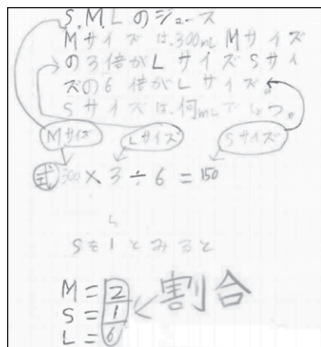 S.M.Lのジュース
Mサイズは.300mL Mサイズ
の3倍がLサイズSサイ
ズの6倍がLサイズ
Sサイズは.何mLでしょう。
Mサイズ Lサイズ Sサイズ
式 300×3÷6=150
Sを1とみると
M=2
S=1 割合
L=6